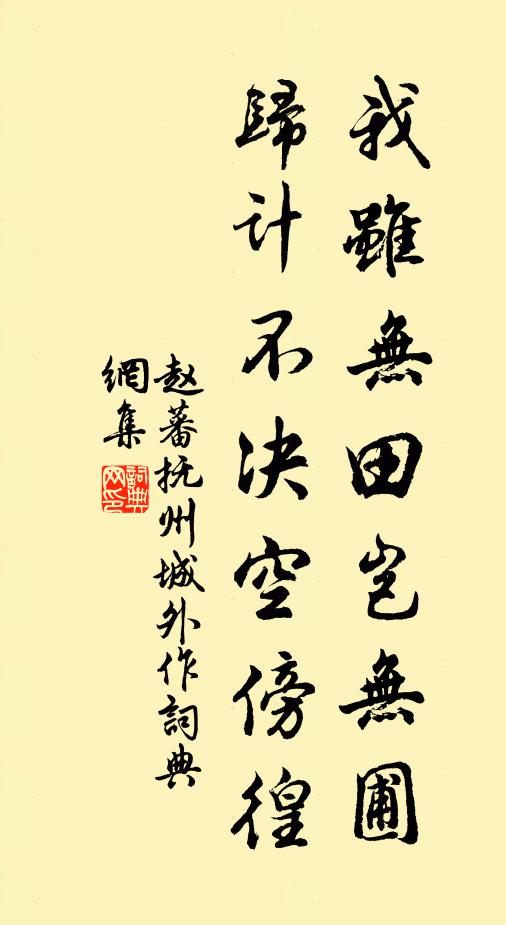 我雖無田豈無圃
歸計不決空傍徨
赵蕃抚州城外作詞典
網集
詞典網印